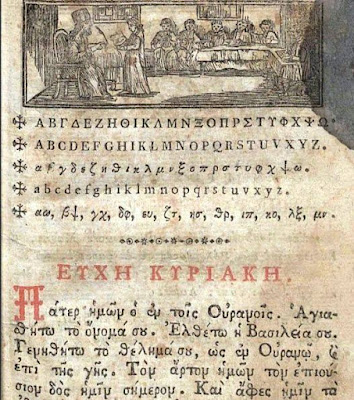 ✠ ΑΒΓΔΕΖΗΘΙΚΛΜΝΞΟΠΡΣΤΥΦΧΨΩ.
✠ ABCDEFGHIKLMNOPQRSTUVXYZ.
✠ αβγδεζηθικλμνξοπρστυφχψω.
✠ abcdefghiklmnopqrstuvxyz.
✠ αω, βψ, γχ, δφ, ευ, ζτ, ησ, θρ, ιπ, κο, λξ, μν.
ΕΥΧΗ ΚΥΡΙΑΚΗ.
Πάτερ ἡμῶν ὁ ἐν τοῖς Οὐρανοῖς. Ἁγια
θήτω τὸ ὄνομα σου. Ἐλθέτω ἡ Βασιλεία σου.
Γενηθήτω τὸ θέλημα σου, ὡς ἐν Οὐρανῷ,
ἐπὶ τῆς γῆς. Τὸν ἄρτον ἡμῶν τὸν ἐπιου
σιον δὸς ἡμῖν σήμερον. Καὶ ἄφες ἡμῖν τὰ